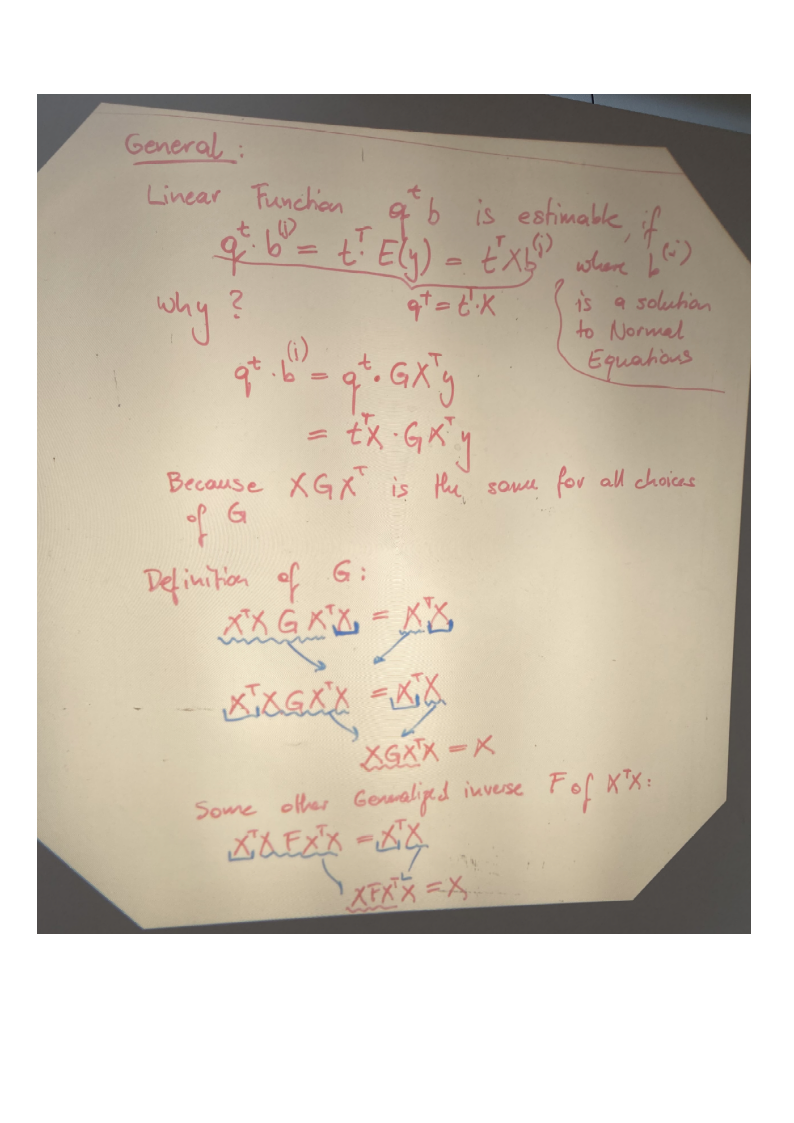 General :
Linear Function qᵗb is estimable, if
qᵗ · b⁽ʲ⁾ = tᵀ · E(y) = tᵀXb⁽ʲ⁾ where b⁽ⁱ⁾
qᵗ = tᵀ·X
is a solution
to Normal
Equations
why ?
qᵗ · b⁽ⁱ⁾ = qᵗ · GXᵀy
= tᵀX · GXᵀy
Because XGXᵀ is the same for all choices
of G
Definition of G :
XᵀXGXᵀX = XᵀX
XᵀXGXᵀX = XᵀX
XGXᵀX = X
Some other Generalized inverse F of XᵀX :
XᵀXFXᵀX = XᵀX
XFXᵀX = X